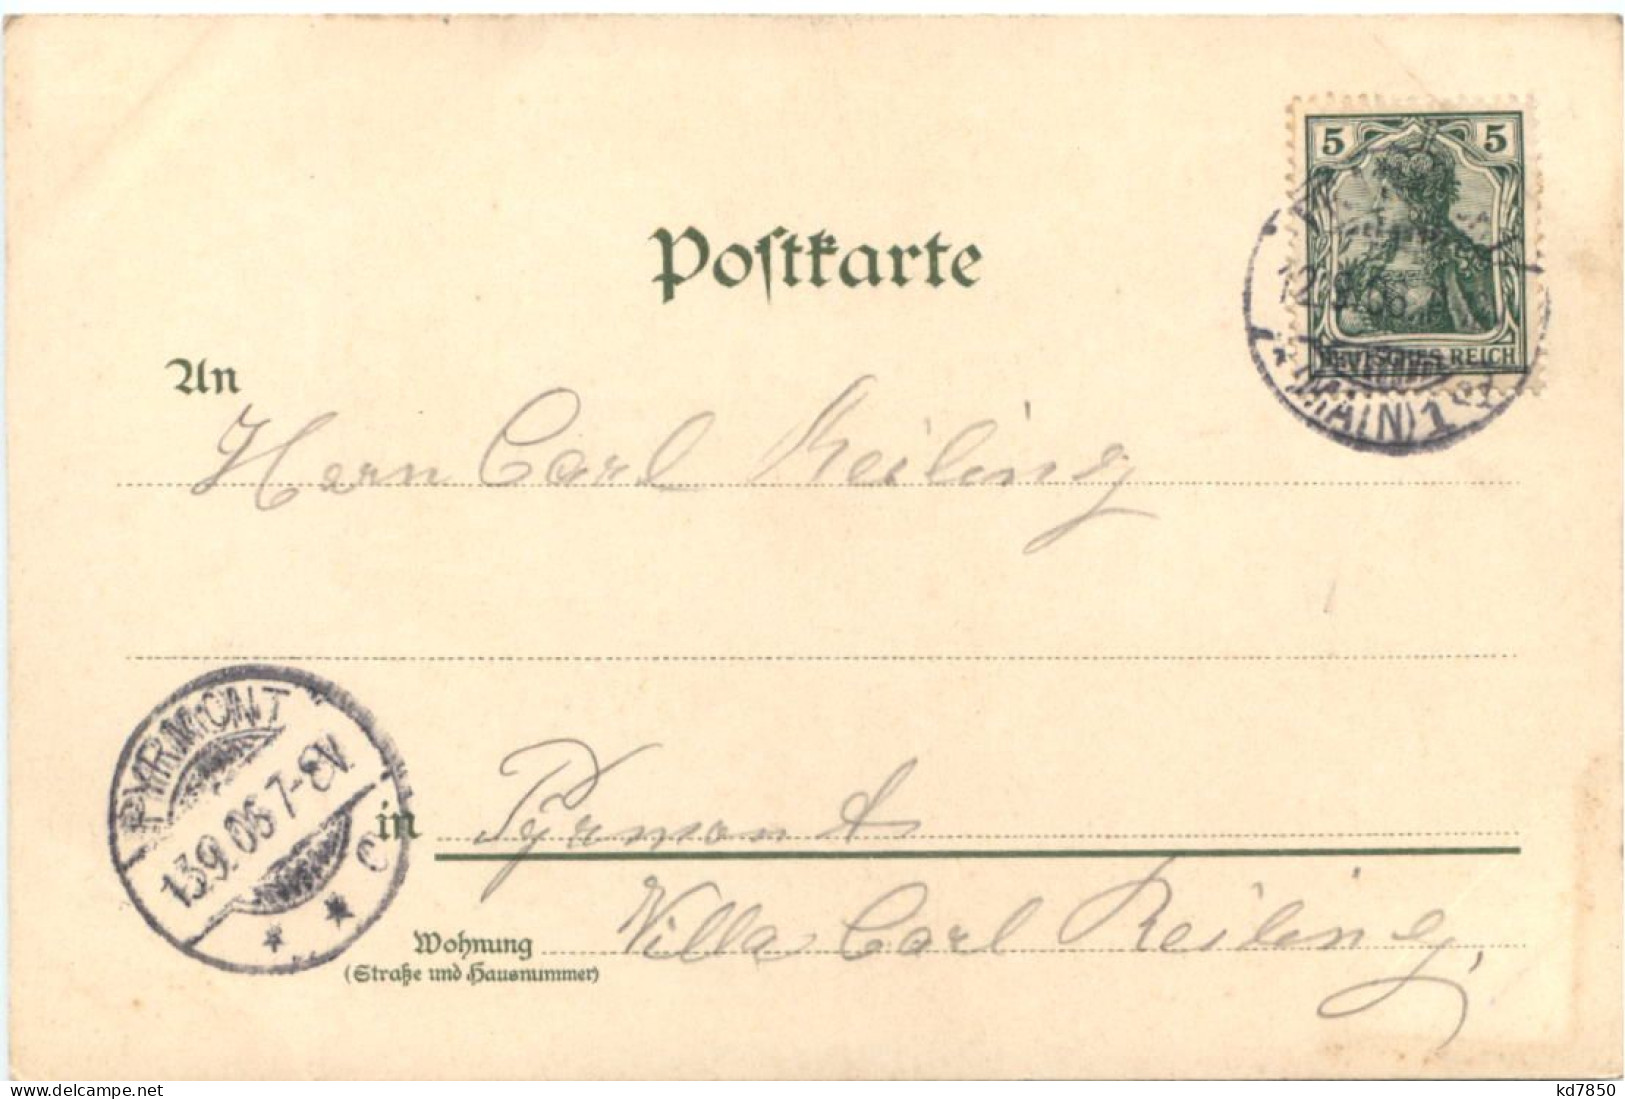 Postkarte
5 5
12.9.06
DEUTSCHES REICH
(MAIN) 1
An
Herrn Carl Reiling
PYRMONT
13.9.06 7-8V.
c
in Pyrmont
Wohnung Villa Carl Reiling,
(Straße und Hausnummer)
delcampe.net
kd7850